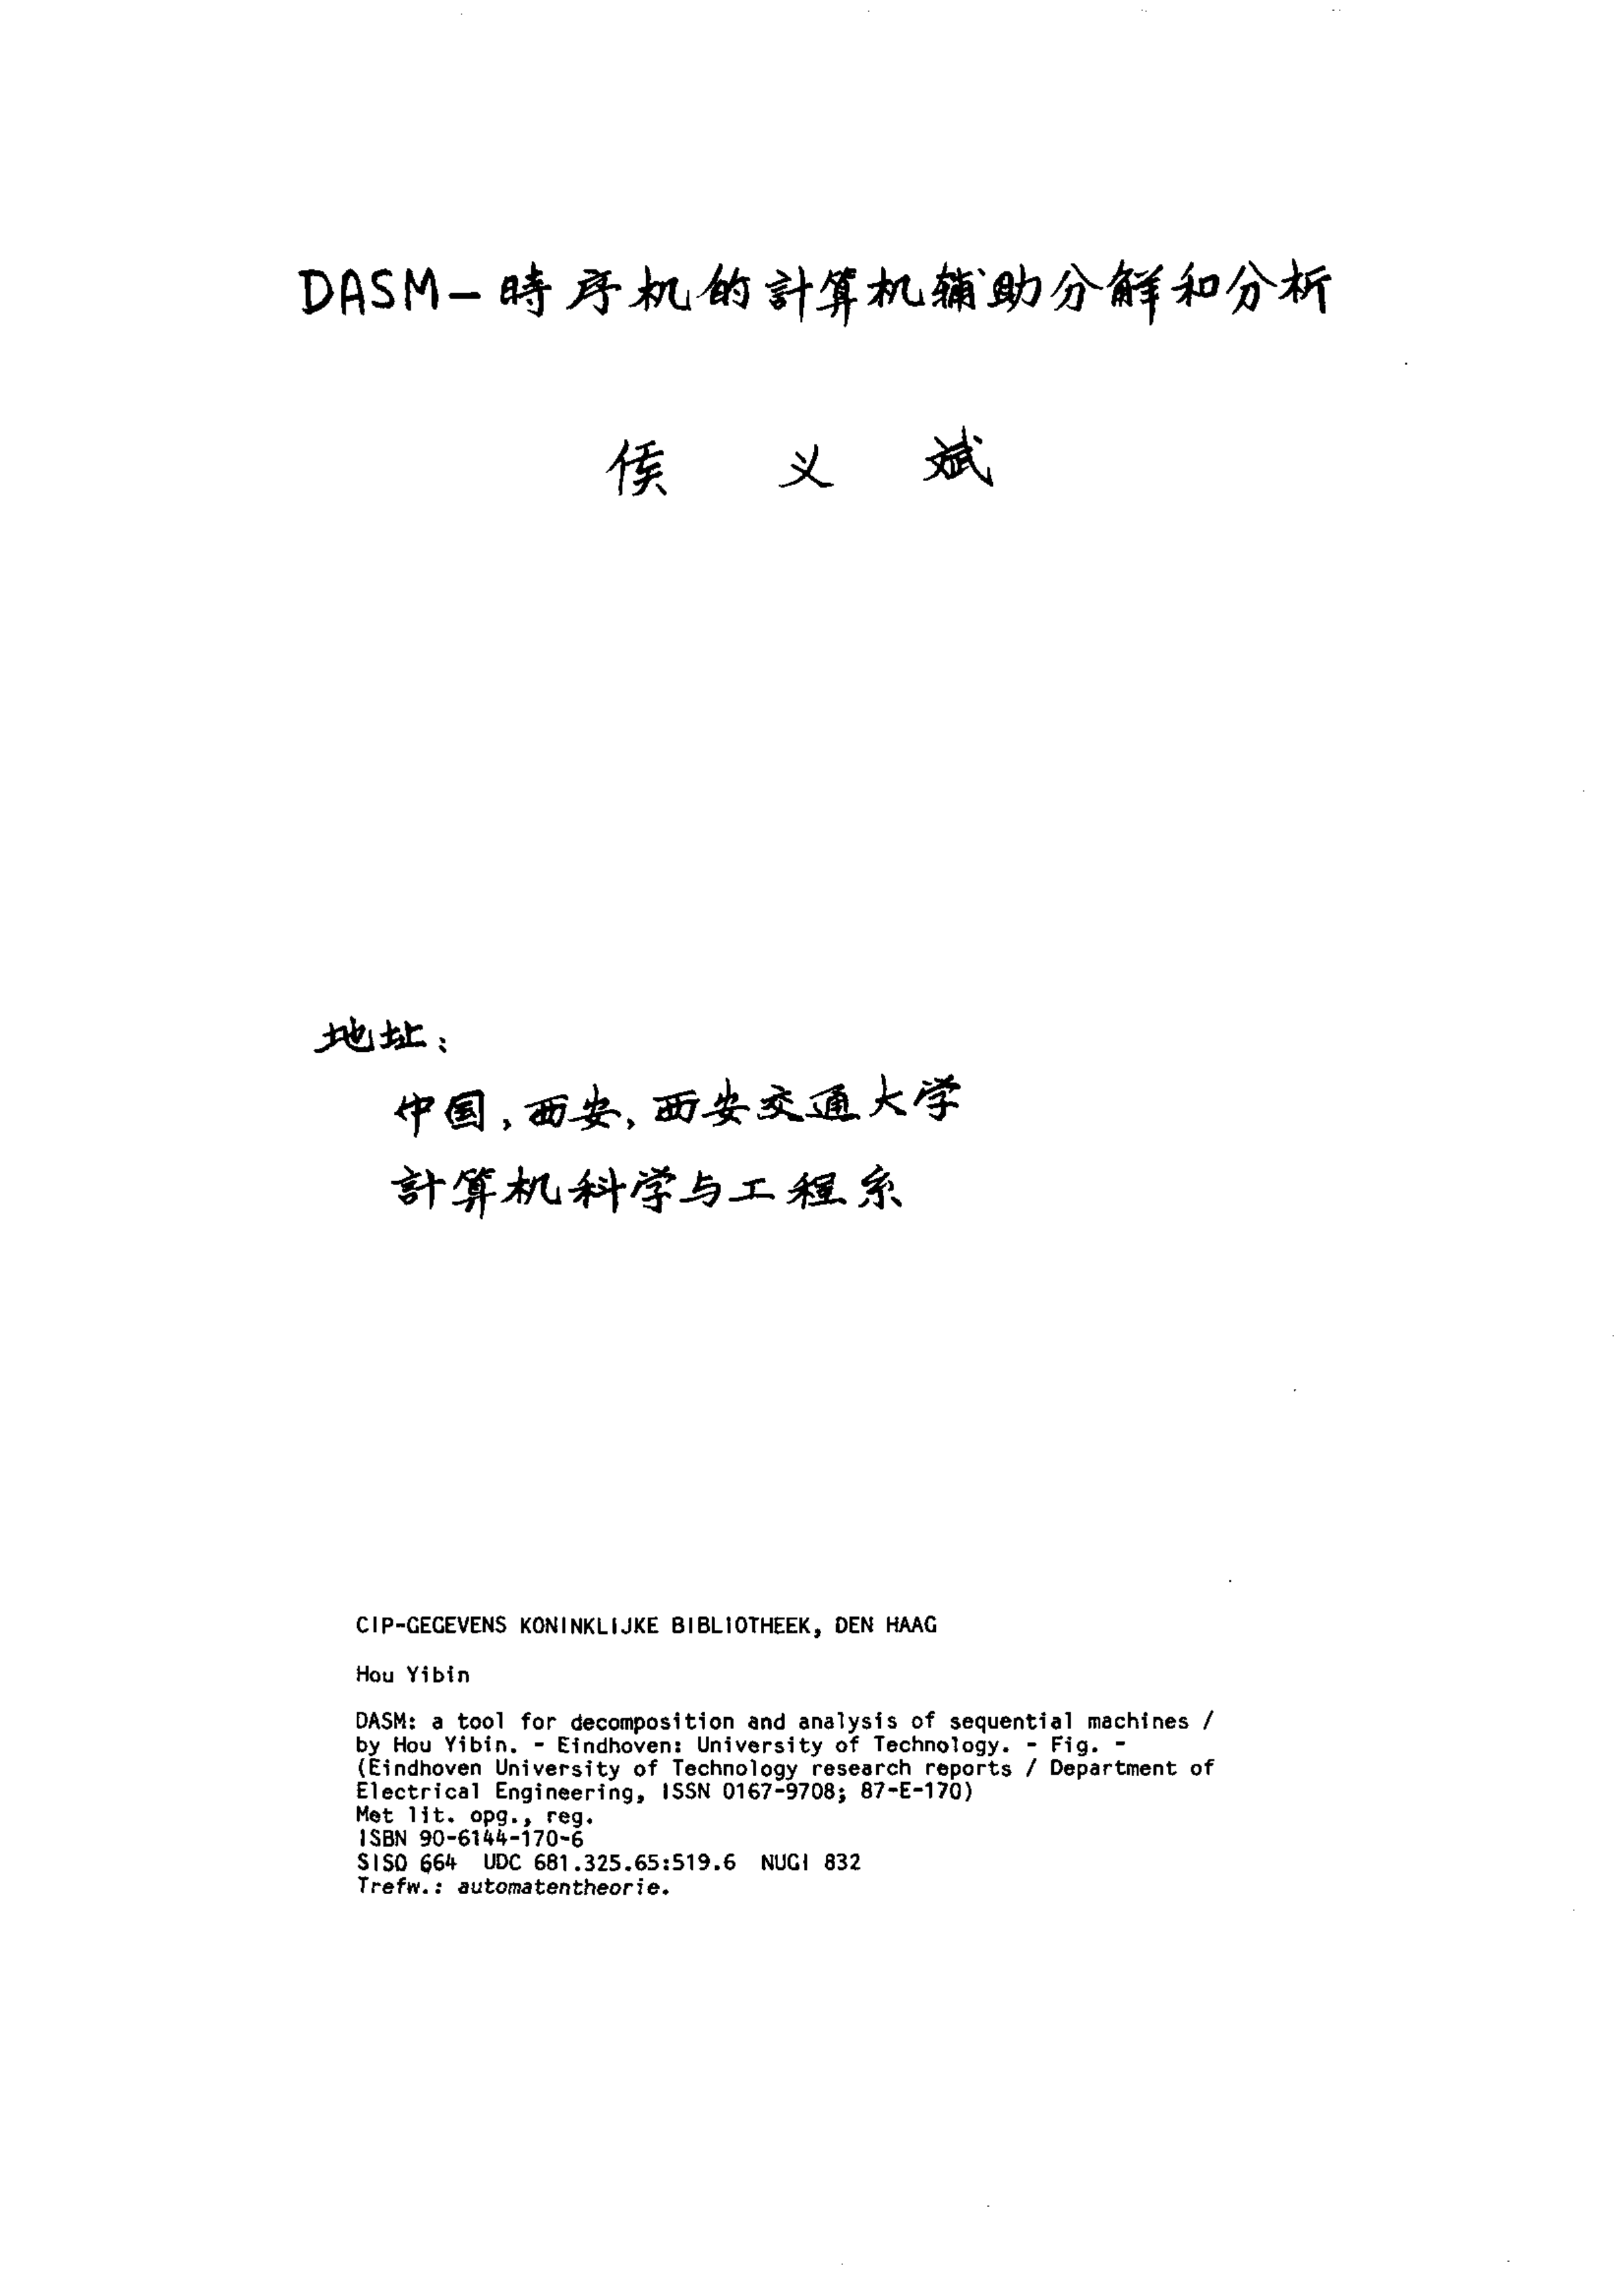 DASM-時序机的計算机辅助分解和分析
侯 义 斌
地址：
中国，西安，西安交通大学
計算机科学与工程系
CIP-GEGEVENS KONINKLIJKE BIBLIOTHEEK, DEN HAAG
Hou Yibin
DASM: a tool for decomposition and analysis of sequential machines /
by Hou Yibin. - Eindhoven: University of Technology. - Fig. -
(Eindhoven University of Technology research reports / Department of
Electrical Engineering, ISSN 0167-9708; 87-E-170)
Met lit. opg., reg.
ISBN 90-6144-170-6
SISO 664 UDC 681.325.65:519.6 NUGI 832
Trefw.: automatentheorie.